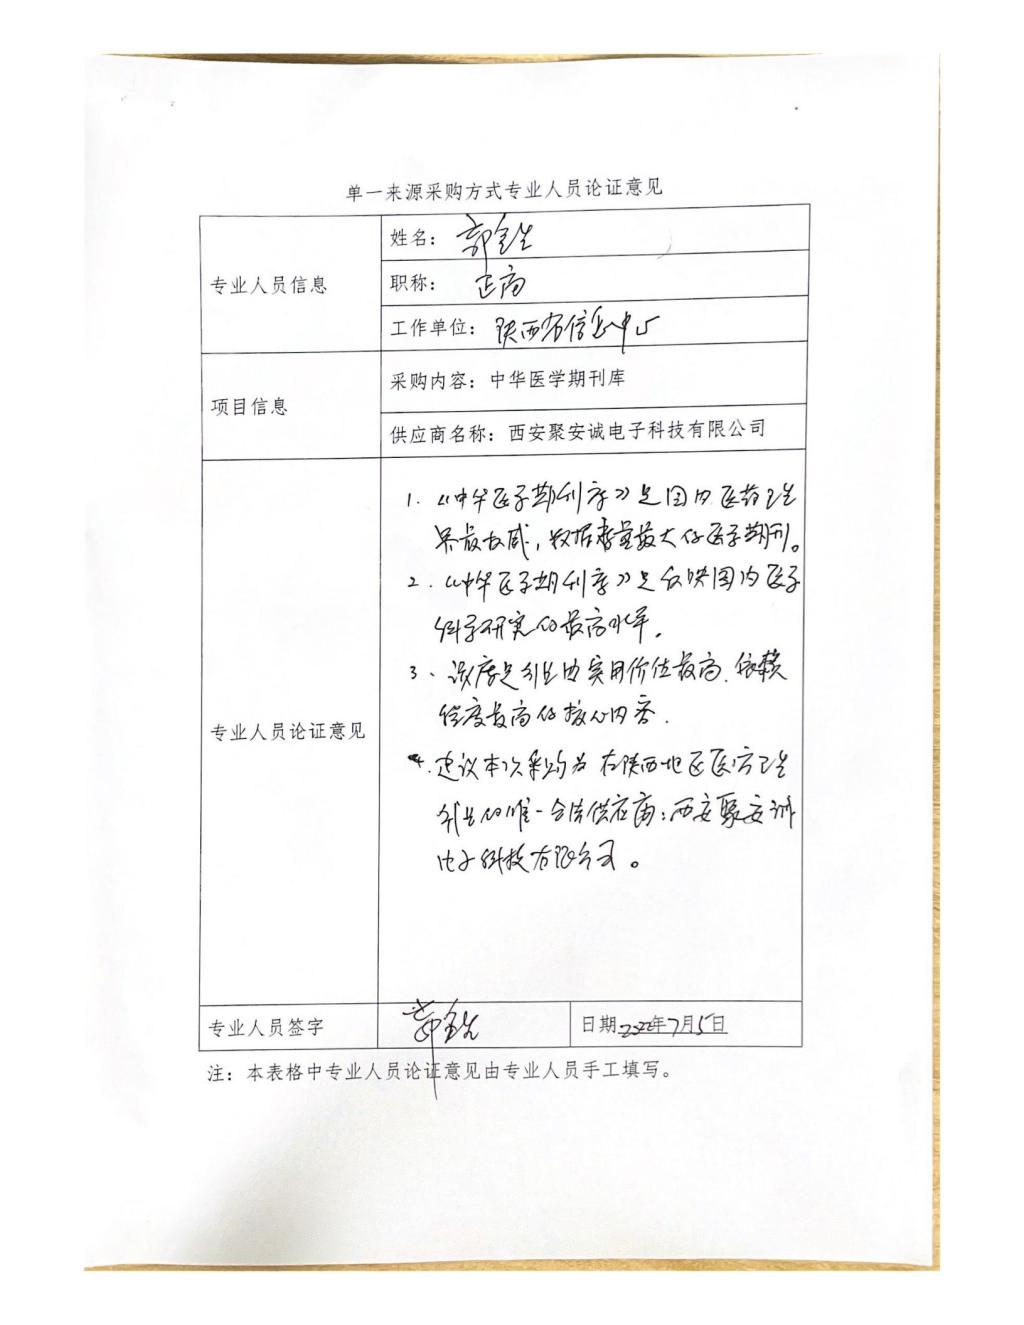 单一来源采购方式专业人员论证意见
专业人员信息
姓名：郭全生
职称：正高
工作单位：陕西省信息中心
项目信息
采购内容：中华医学期刊库
供应商名称：西安聚安诚电子科技有限公司
专业人员论证意见
1.《中华医学期刊库》是国内医药卫生
界最权威，数据质量最大的医学期刊。
2.《中华医学期刊库》是反映国内医学
科学研究的最高水平。
3、该库是业内实用价值最高、依赖
程度最高的核心内容.
4.建议本次采购为在陕西地区医疗卫生
行业的唯一合法供应商：西安聚安诚
电子科技有限公司。
专业人员签字
日期2022年7月5日
注：本表格中专业人员论证意见由专业人员手工填写。